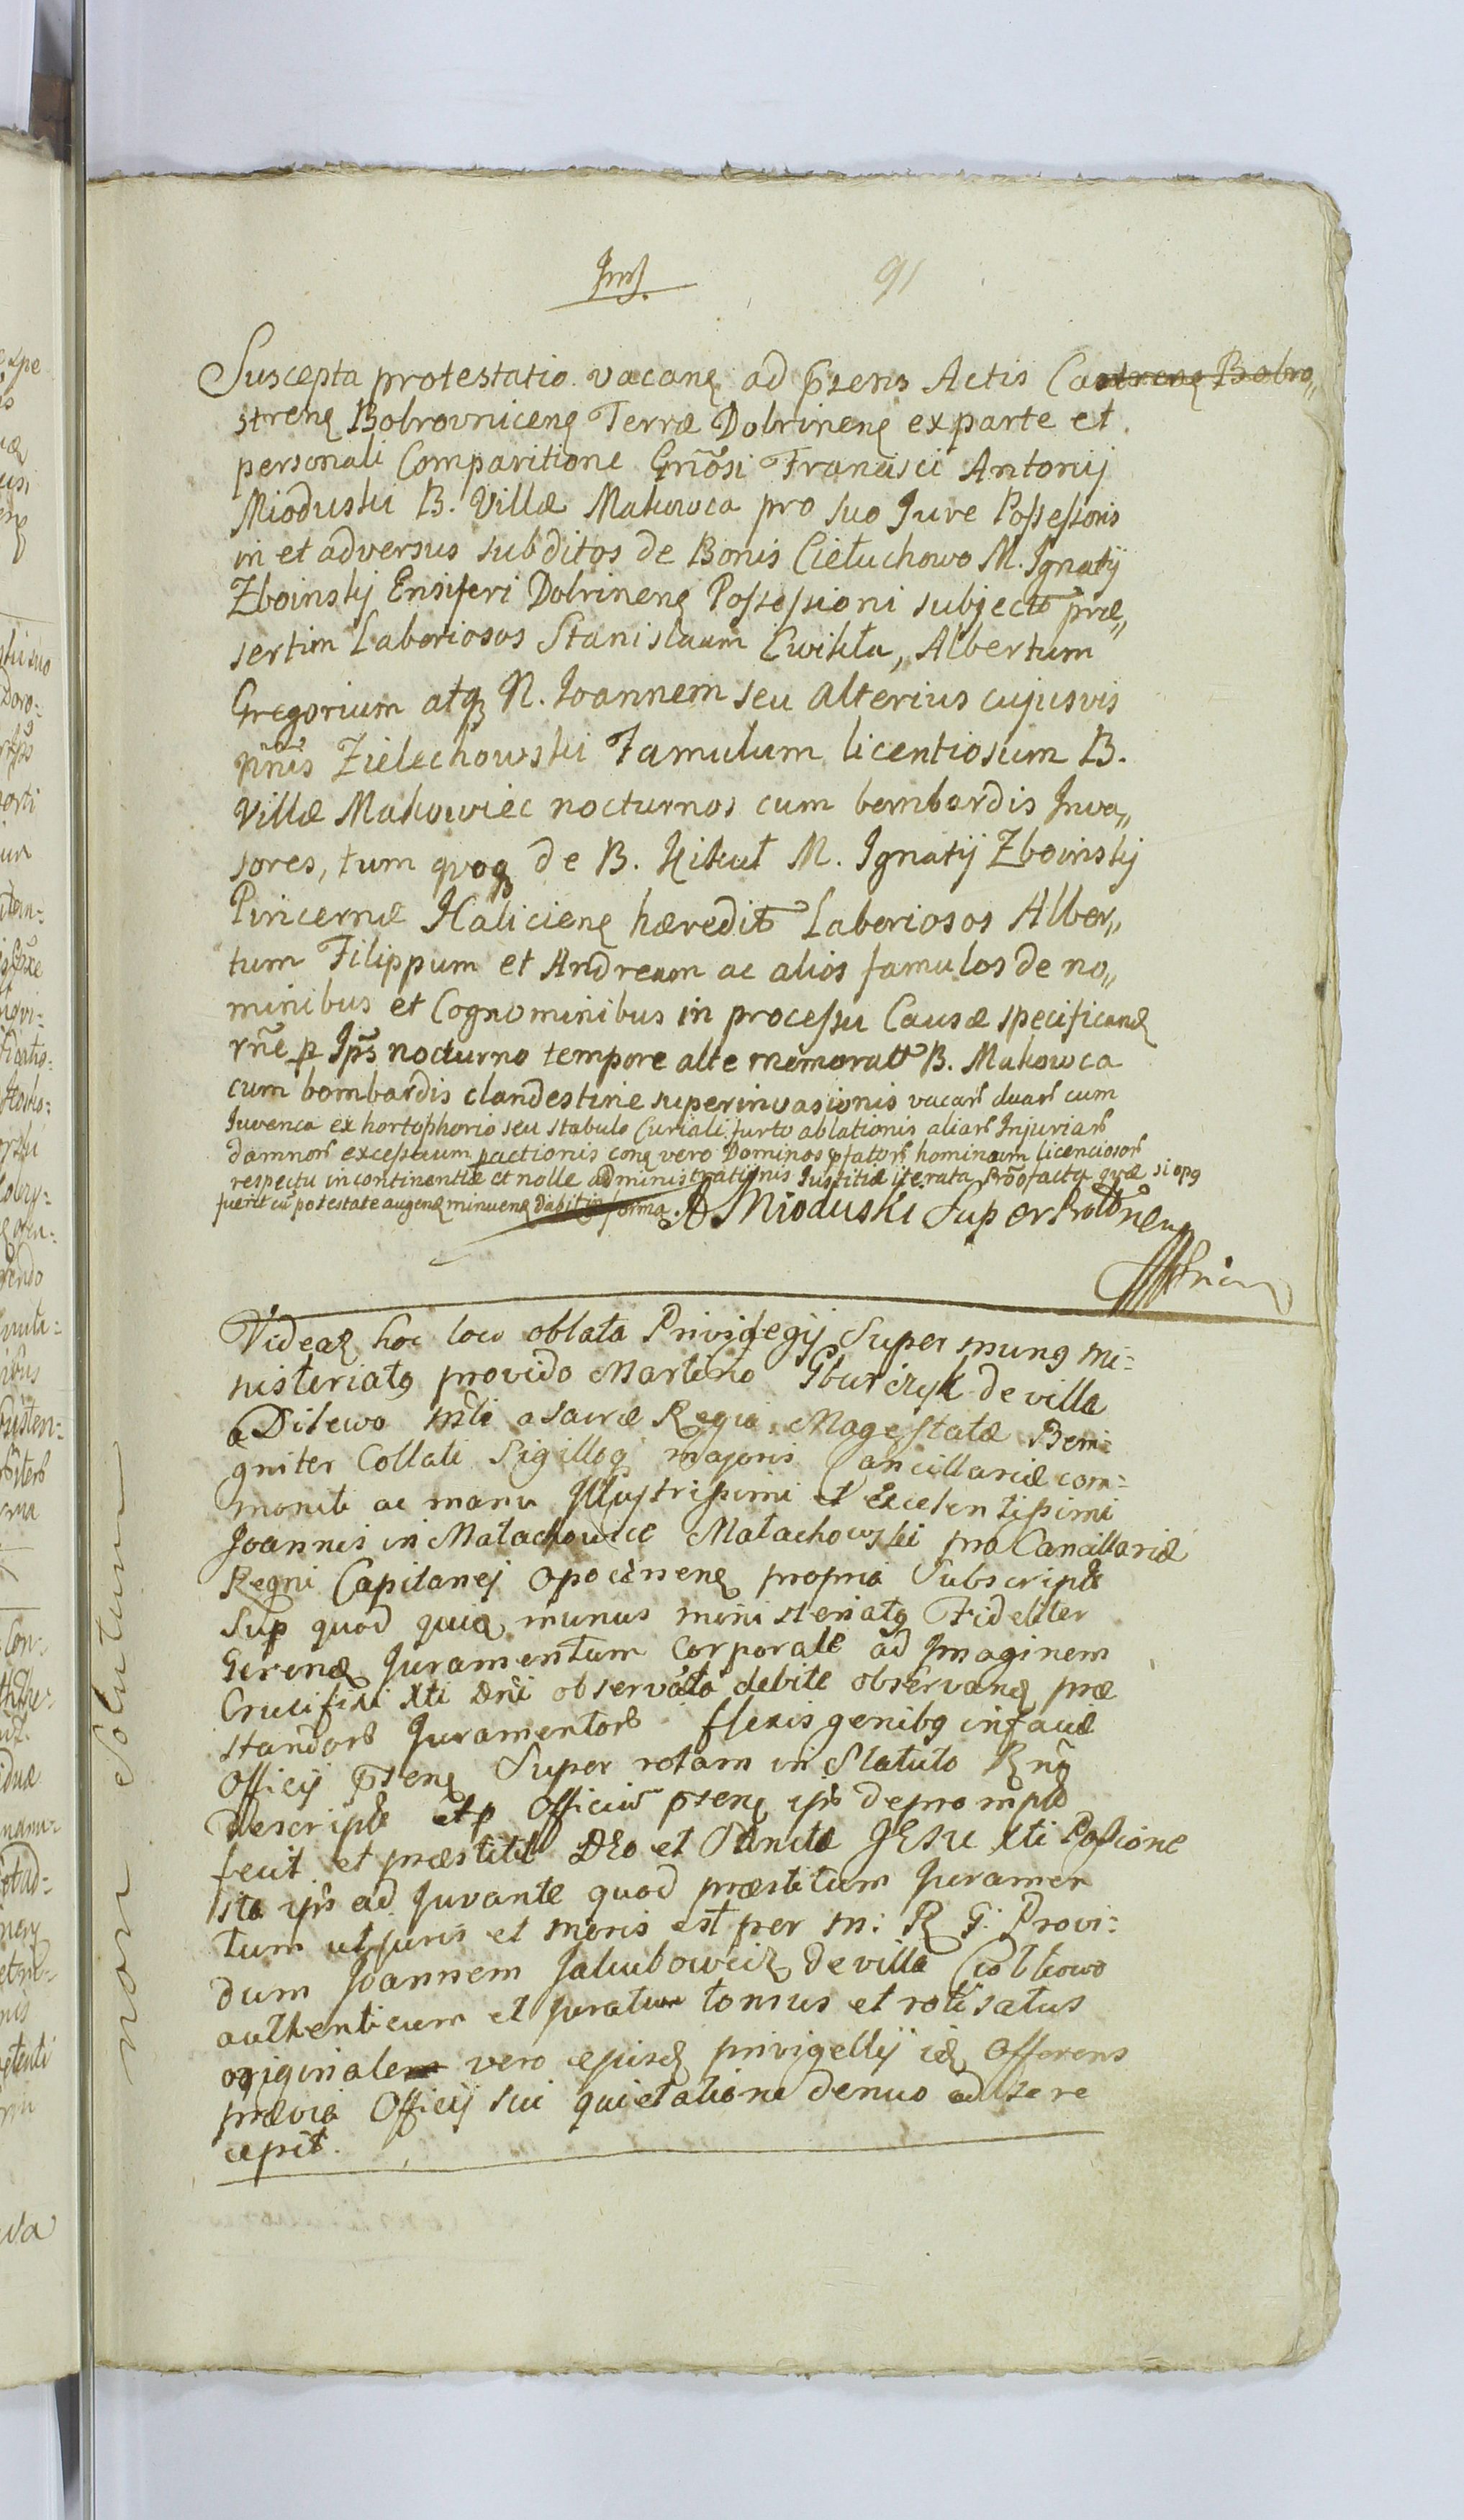 91
Suscepta protestatio vacanȩ ad p̄sens Actis Castrenȩ Bobro„
strenȩ Bobrovnicenȩ Terræ Dobrinenȩ ex parte et
personali Comparitione Gn̄osi Francisci Antonij
Mioduski B. Villæ Makowca pro suo Jure Possessoris
in et adversus subditos de Bonis Ciełuchowo M. Ignatij
Zboinskij Ensiferi Dobrinenȩ Possessioni subject præ„
sertim Laboriosos Stanislaum Cwikła, Albertum
Gregorium atqȝ N. Joannem seu alterius cujusvis
nn̄is Zielechowski Famulum licentiosum B.
Villæ Makowiec nocturnos cum bombardis Inva„
sores, tum qvoqȝ de B. Kikuł M. Ignatij Zboinskij
Pincernæ Halicienȩ hæredit Laboriosos Alber„
tum Filippum et Andream ac alios famulos de no„
minibus et Cognominibus in processu Causæ specificanȩ
rn̄e p Ip̄s nocturno tempore alte memoratt B. Makowca
cum bombardis clandestine superinvasionis vacar duar cum
Juvenca ex hortophorio seu stabulo Curiali furto ablationis aliar Injuriar
damnor excessuum pactionis conȩ vero Dominos p̄fator hominum licenciosor
respectu incontinentiæ et nolle administrationis Justitiæ iterata Pro facta qvæ si op9
fuerit cū potestate augenȩ minuenȩ dabit in forma. A Mioduski Super
Videaȥ hoc loco oblata Privilegij Super mun9 mi=
nisteriat9 provido Martino Gburczyk de villa
a Ditewo a sacræ Regia Magestatæ Beni
gniter Collati Sigilloqȝ majoris Cancillariæ com=
moniti ac manu Jllustrissimi et Excelentissimi
Joannis in Małachowice Małachowski pro Cancillariæ
Regni Capitanej Opocinenȩ propria Subscript
Sup quod quia munus ministeriat9 Fideliter
Gerenȩ Juramentum Corporale ad Jmaginem
Crucifixi Xti Dni observata debite observanȩ præ
standor Juramentor flexis genib9 in facie
Officij p̄senȩ Super rotam in Statuto Rn̄g
descript et p Officiū p̄senȩ ip̄s depromptt
fecit et præstitit DEo et Sancta JESU Xti Passione
sta ip̄s adjuvante quod præstitum Juramen
tum ut juris et moris est per M: R G: Provi=
dum Joannem Jakubowicz de villa
authenticum et juratum tonsus et rotisatus
originale vero ejusȩ privigellij idȩ Offerens
prævia Officij sui quietatione denuo ad se re
cepit.
non Solutum